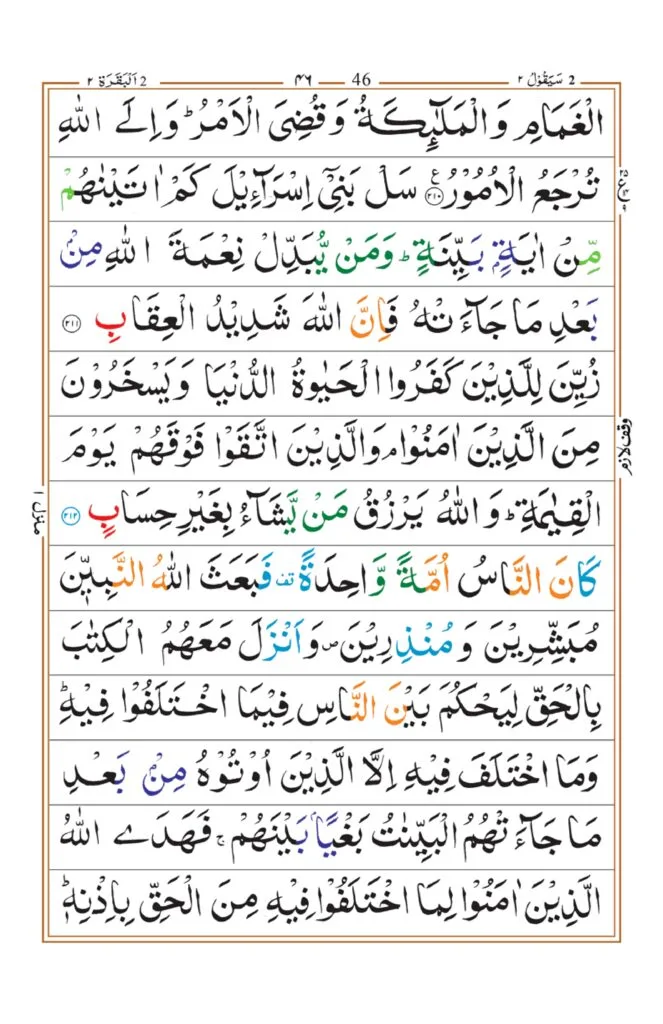 2 سَيَقُوْلُ ٢ 46 ٤٦ 2 اَلْبَقَرَة ٢
الْغَمَامِ وَالْمَلٰٓئِكَةُ وَقُضِىَ الْاَمْرُ ؕ وَاِلَى اللّٰهِ
تُرْجَعُ الْاُمُوْرُ ﴿۲۱۰﴾ ع سَلْ بَنِىْٓ اِسْرَآءِيْلَ كَمْ اٰتَيْنٰهُمْ
مِّنْ اٰيَةٍۭ بَيِّنَةٍ ؕ وَمَنْ يُّبَدِّلْ نِعْمَةَ اللّٰهِ مِنْۢ
بَعْدِ مَا جَآءَتْهُ فَاِنَّ اللّٰهَ شَدِيْدُ الْعِقَابِ ﴿۲۱۱﴾
زُيِّنَ لِلَّذِيْنَ كَفَرُوا الْحَيٰوةُ الدُّنْيَا وَيَسْخَرُوْنَ
مِنَ الَّذِيْنَ اٰمَنُوْا ۘ وَالَّذِيْنَ اتَّقَوْا فَوْقَهُمْ يَوْمَ
وقف لازم
الْقِيٰمَةِ ؕ وَاللّٰهُ يَرْزُقُ مَنْ يَّشَآءُ بِغَيْرِ حِسَابٍ ﴿۲۱۲﴾
منزل ١
كَانَ النَّاسُ اُمَّةً وَّاحِدَةً قف فَبَعَثَ اللّٰهُ النَّبِيّٖنَ
مُبَشِّرِيْنَ وَمُنْذِرِيْنَ ص وَاَنْزَلَ مَعَهُمُ الْكِتٰبَ
بِالْحَقِّ لِيَحْكُمَ بَيْنَ النَّاسِ فِيْمَا اخْتَلَفُوْا فِيْهِ ؕ
وَمَا اخْتَلَفَ فِيْهِ اِلَّا الَّذِيْنَ اُوْتُوْهُ مِنْۢ بَعْدِ
مَا جَآءَتْهُمُ الْبَيِّنٰتُ بَغْيًاۢ بَيْنَهُمْ ۚ فَهَدَى اللّٰهُ
الَّذِيْنَ اٰمَنُوْا لِمَا اخْتَلَفُوْا فِيْهِ مِنَ الْحَقِّ بِاِذْنِهٖ ؕ